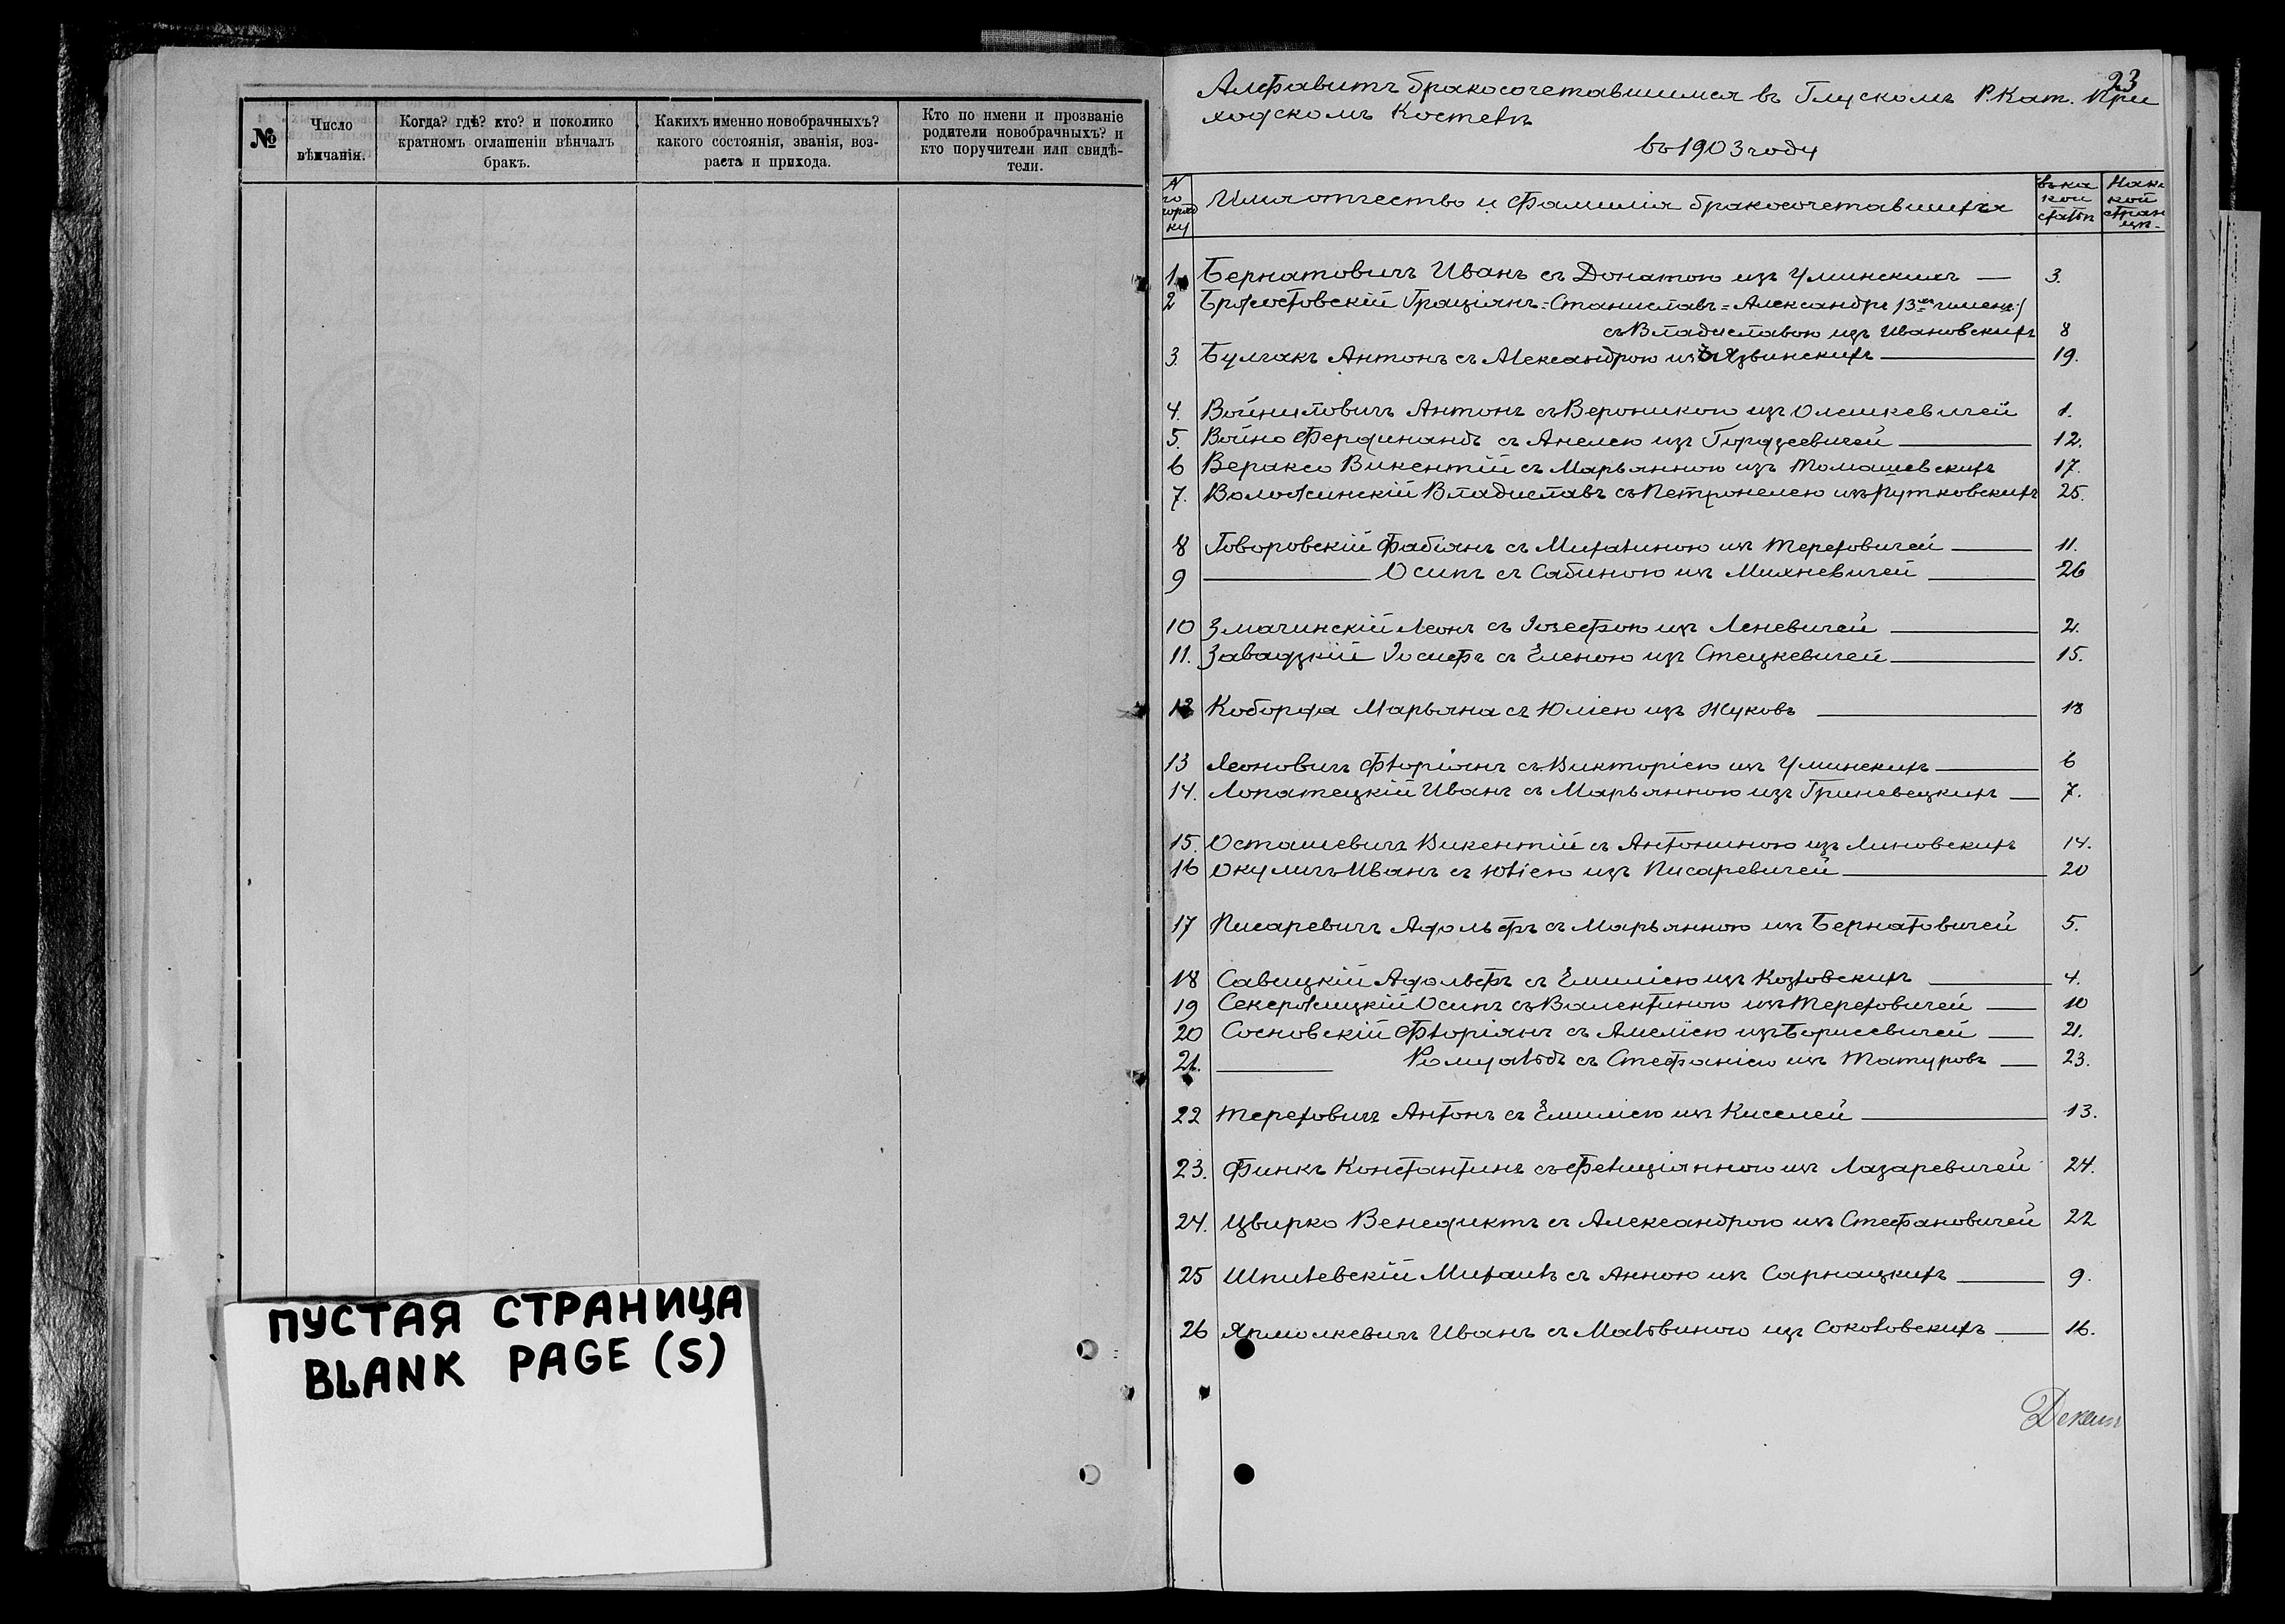 №
Число
вѣнчанія.
Когда? гдѣ? кто? и поколико
кратномъ оглашеніи вѣнчалъ
бракъ.
Какихъ именно новобрачныхъ?
какого состоянія, званія, воз-
раста и прихода.
Кто по имени и прозваніе
родители новобрачныхъ? и
кто поручители или свидѣ-
тели.
ПУСТАЯ СТРАНИЦА
BLANK PAGE (S)
23
Алфавитъ бракосочетавшимся въ Глускомъ Р. Кат. При
ходскомъ Костелѣ
въ 1903 году
№ по порядку
Имя отчество и фамилія бракосочетавшихся
въ ка
кой
статьѣ
На ка
кой
стран
ицѣ
1. Бернатовичъ Иванъ съ Донатою изъ Уминскихъ — 3.
2 Бржостовскій Граціянъ=Станиславъ=Александръ /3хъ именъ/
съ Владиславою изъ Ивановскихъ 8
3. Булгакъ Антонъ съ Александрою изъ Язвинскихъ 19.
4. Войниловичъ Антонъ съ Вероникою изъ Олешкевичей 1.
5. Войно Фердинандъ съ Анелею изъ Гордзеевичей 12.
6 Вераксо Викентій съ Марьянною изъ Томашевскихъ 17.
7. Воложинскій Владиславъ съ Петронелею изъ Рутковскихъ 25.
8 Говоровскій Фабіянъ съ Михалиною изъ Тереховичей 11.
9 Осипъ съ Сабиною изъ Михневичей 26
10 Змачинскій Леонъ съ Іозефою изъ Леневичей 2.
11. Завадзкій Іосифъ съ Еленою изъ Стецкевичей 15.
12 Кобордa Марьяна съ Юліею изъ Жуковъ 18
13 Леоновичъ Флоріянъ съ Викторіею изъ Уминскихъ 6
14. Лопатецкій Иванъ съ Марьянною изъ Гриневецкихъ 7.
15. Осташевичъ Викентій съ Антониною изъ Линовскихъ 14.
16 Окуличъ Иванъ съ Юліею изъ Писаревичей 20
17 Писаревичъ Адольфъ съ Марьянною изъ Бернатовичей 5.
18 Савицкій Адольфъ съ Емиліею изъ Козловскихъ 4.
19 Секержицкій Осипъ съ Валентиною изъ Тереховичей 10
20 Сосновскій Флоріянъ съ Амеліею изъ Борисевичей 21.
21. Ромуальдъ съ Стефаніею изъ Татуровъ 23.
22 Тереховичъ Антонъ съ Емиліею изъ Киселей 13.
23. Финкъ Константинъ съ Фелиціянною изъ Лазаревичей 24.
24. Цвирко Венедиктъ съ Александрою изъ Стефановичей 22
25 Шпилевскій Михаилъ съ Анною изъ Сарнацкихъ 9.
26 Ярмолкевичъ Иванъ съ Мальвиною изъ Соколовскихъ 16.
Декан